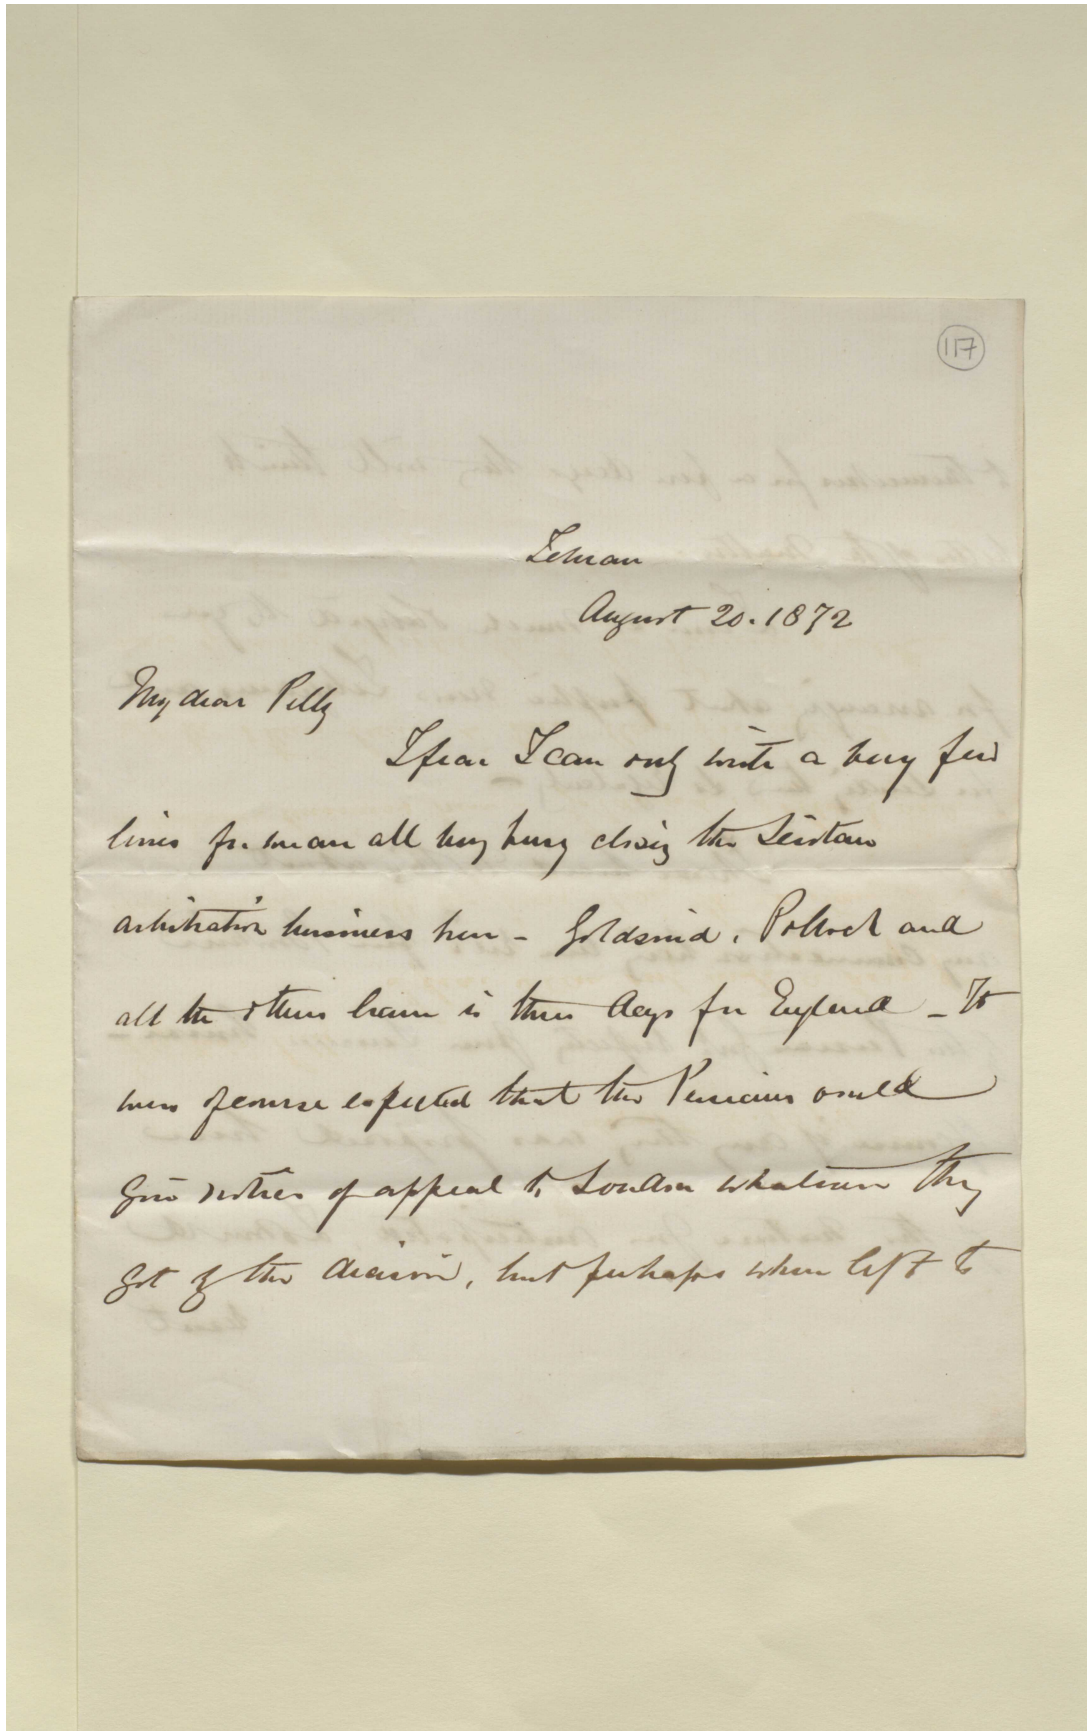 117
Tehran
August 20. 1872
My dear Pelly
I fear I can only write a very few
lines for we are all very busy closing the Seistan
arbitration business here - Goldsmid, Pollock and
all the others leave in three days for England - It
was of course expected that the Persians would
give notice of appeal to London whatever they
got by the decision, but perhaps when left to